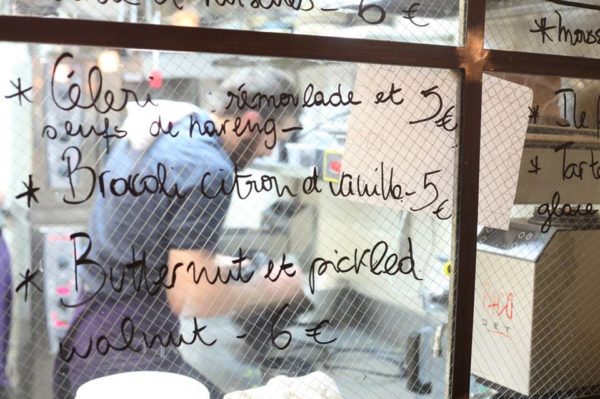 6 €
* Mouss
* Céleri rémoulade et 5€
oeufs de hareng -
* Brocoli citron et vanilla - 5€
* Butternut et pickled
walnut - 6 €
* Ile
* Tarte
glace